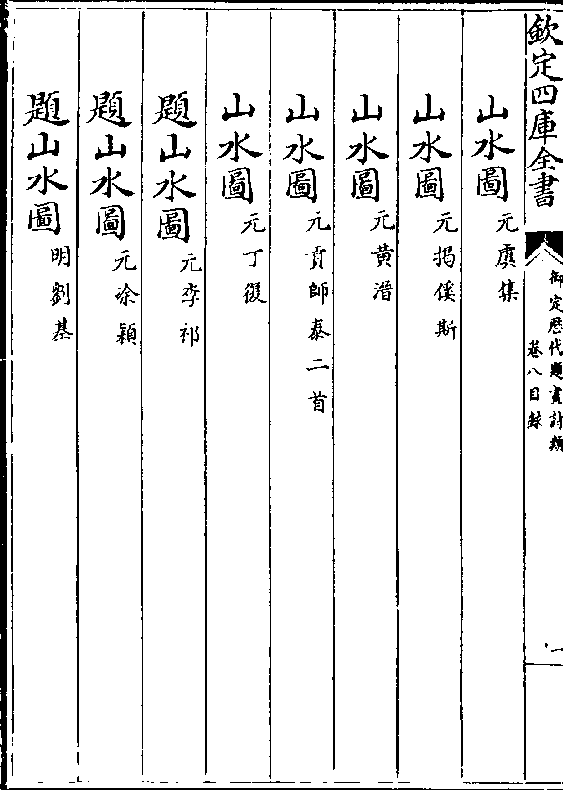 欽定四庫全書
御定歴代題畫詩類
卷八目録
一
山水圖 元虞集
山水圖 元揭傒斯
山水圖 元黃溍
山水圖 元貢師泰二首
山水圖 元丁復
題山水圖 元李祁
題山水圖 元涂穎
題山水圖 明劉基